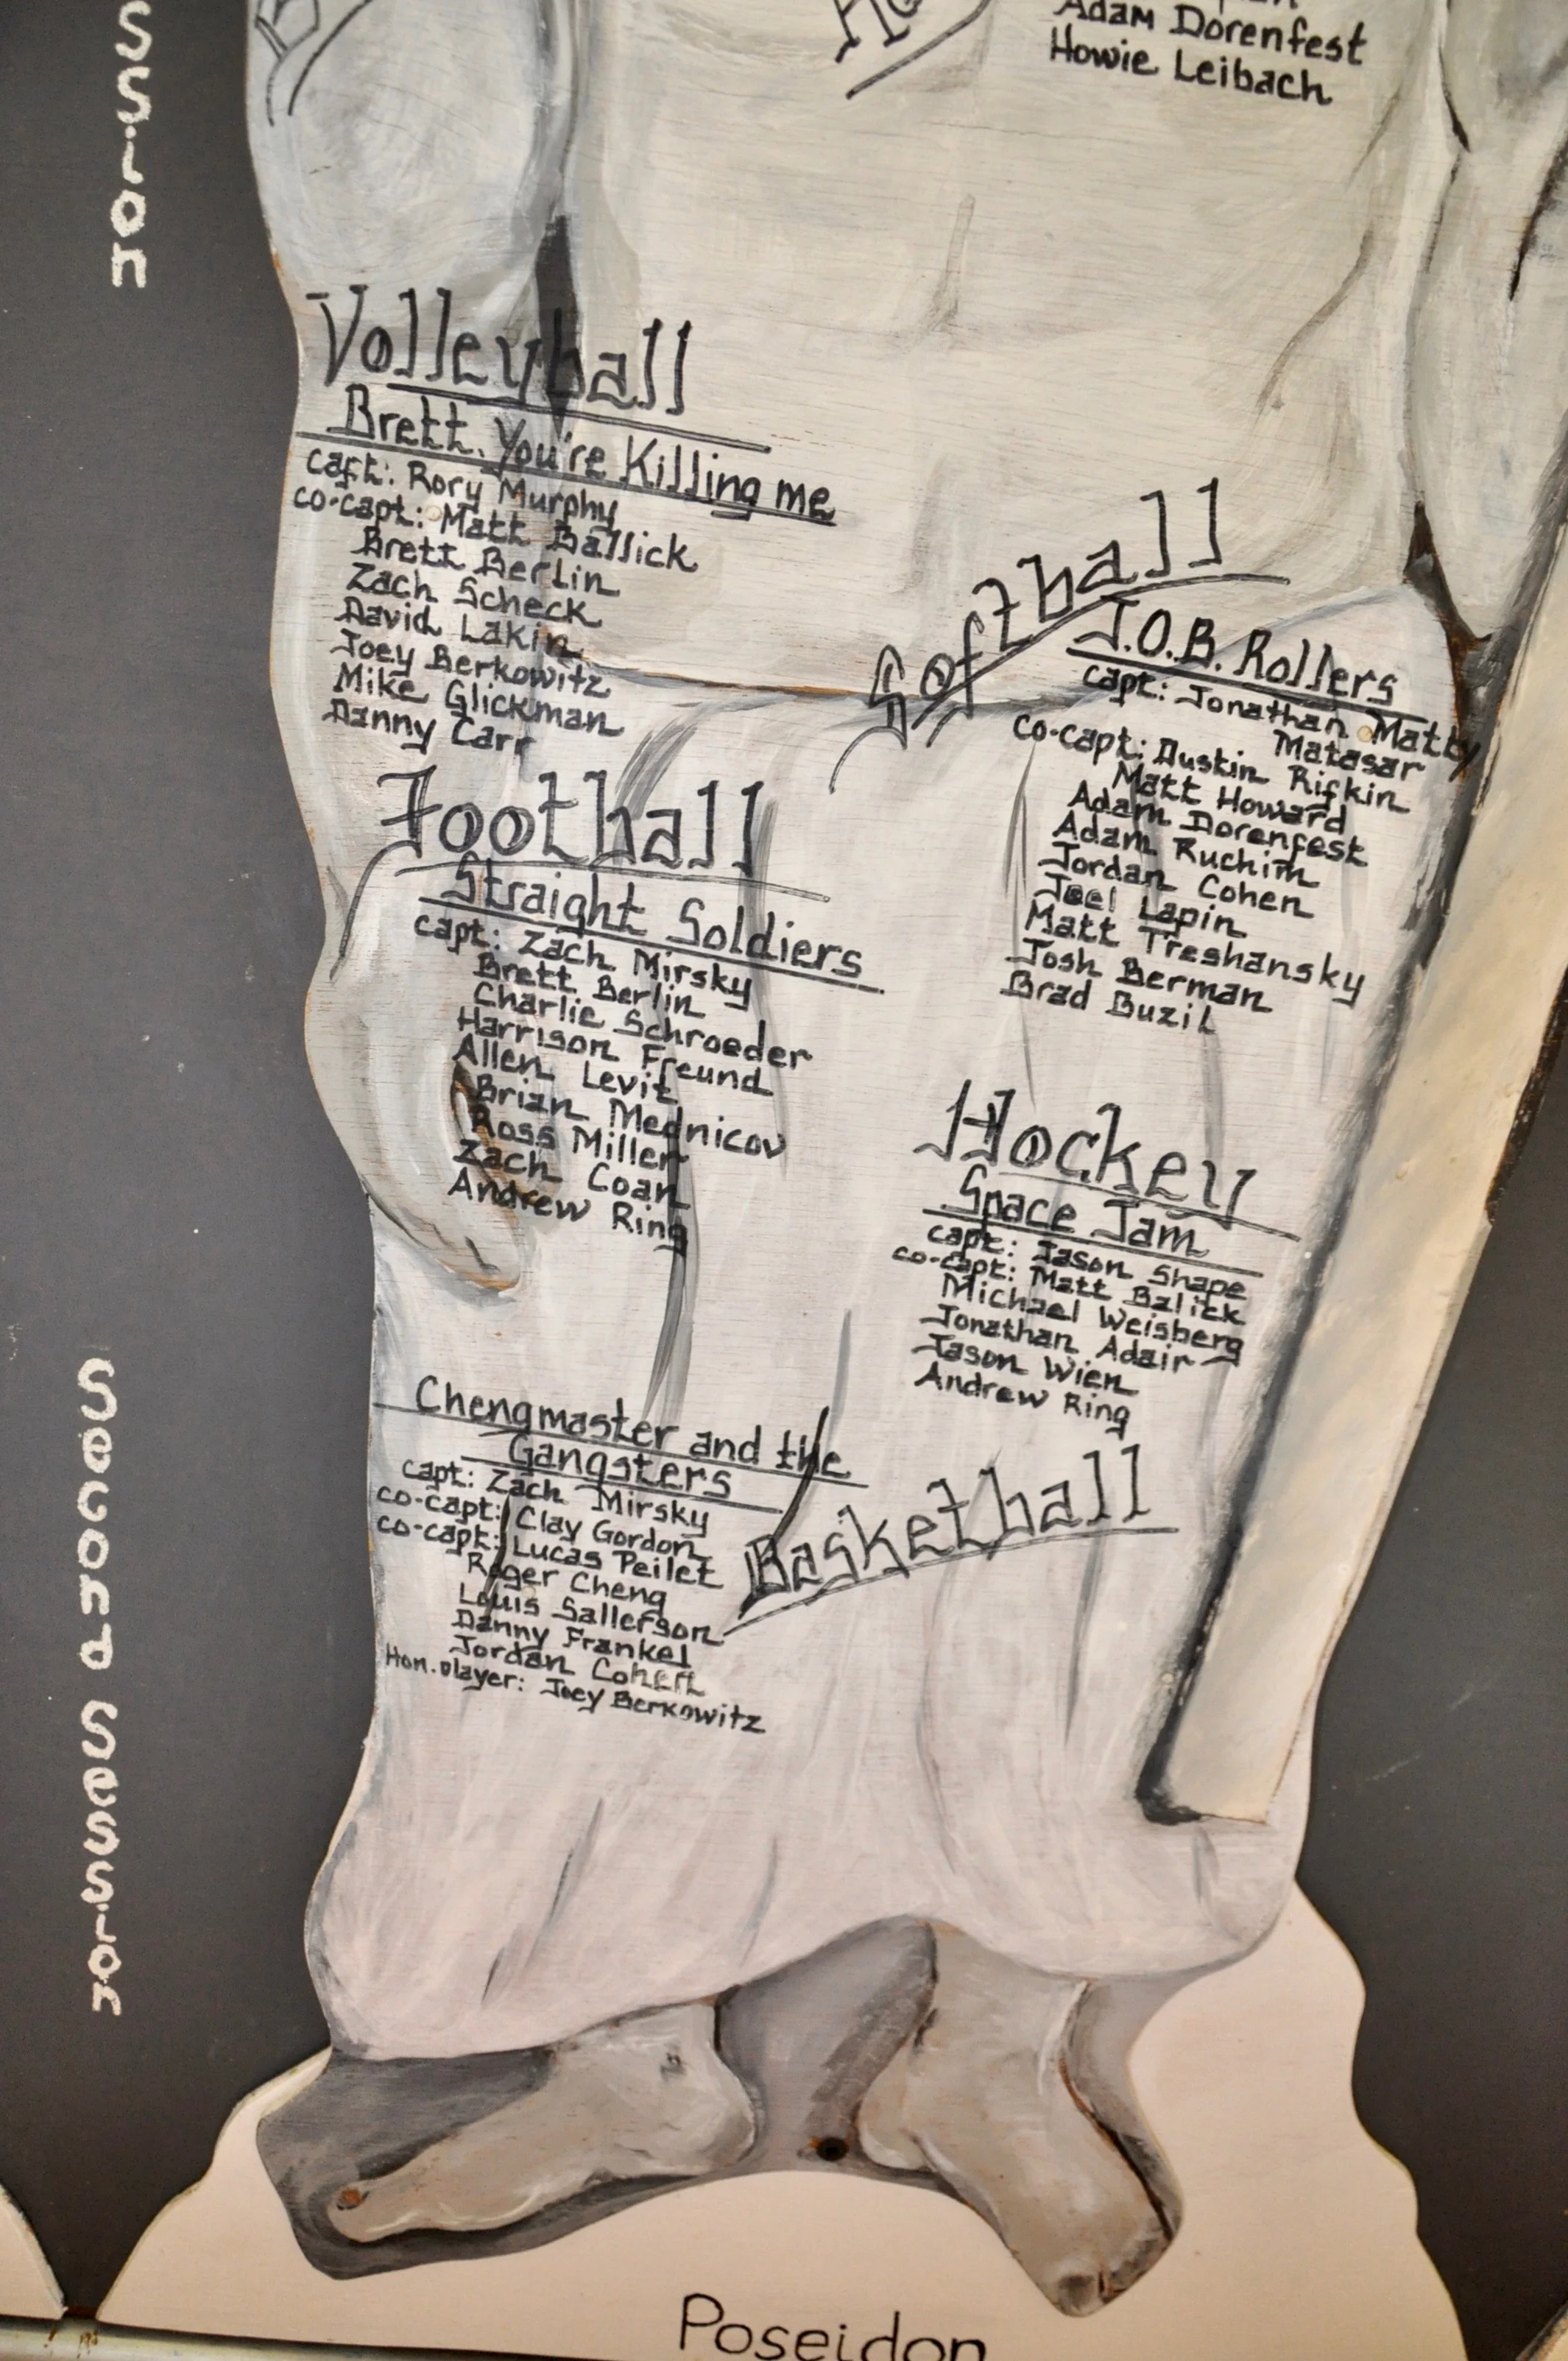 ssion
Adam Dorenfest
Howie Leibach
Volleyball
Brett, You're Killing me
capt: Rory Murphy
co-capt: Matt Ballick
Brett Berlin
Zach Scheck
David Lakin
Joey Berkowitz
Mike Glickman
Danny Carr
Softball
J.O.B. Rollers
capt: Jonathan Matty
Matasar
co-capt: Austin Rifkin
Matt Howard
Adam Dorenfest
Adam Ruchim
Jordan Cohen
Joel Lapin
Matt Treshansky
Josh Berman
Brad Buzil
Football
Straight Soldiers
capt: Zach Mirsky
Brett Berlin
Charlie Schroeder
Harrison Freund
Allen Levit
Brian Mednicov
Ross Miller
Zach Coan
Andrew Ring
Hockey
Space Jam
capt: Jason Shape
co-capt: Matt Balick
Michael Weisberg
Jonathan Adair
Jason Wien
Andrew Ring
Second Session
Basketball
Chengmaster and the
Gangsters
capt: Zach Mirsky
co-capt: Clay Gordon
co-capt: Lucas Peilet
Roger Cheng
Louis Sallerson
Danny Frankel
Jordan Cohen
Hon. player: Joey Berkowitz
Poseidon